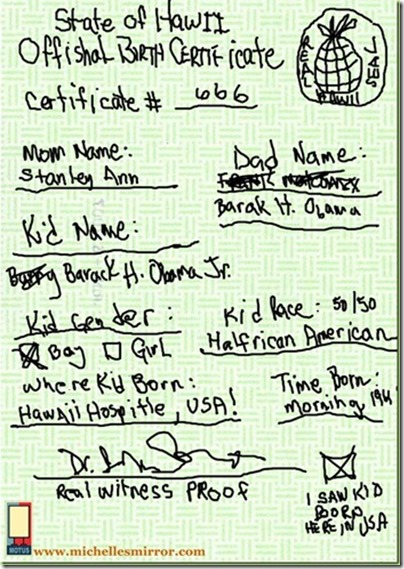 State of HawII
Offishal BIRTH CERTIFicate
Certificate # 666
REAL HAWII SEAL
Mom Name:
Stanley Ann
Dad Name:
Barak H. Obama
Kid Name:
Barack H. Obama Jr.
Kid Gender:
Boy Girl
Kid Race: 50/50
Halfrican American
Where Kid Born:
Hawaii Hospitle, USA!
Time Born:
morning,
Dr.
Real Witness PROOF
I SAW KID
BOORN
HERE, IN USA
MOTUS
www.michellesmirror.com